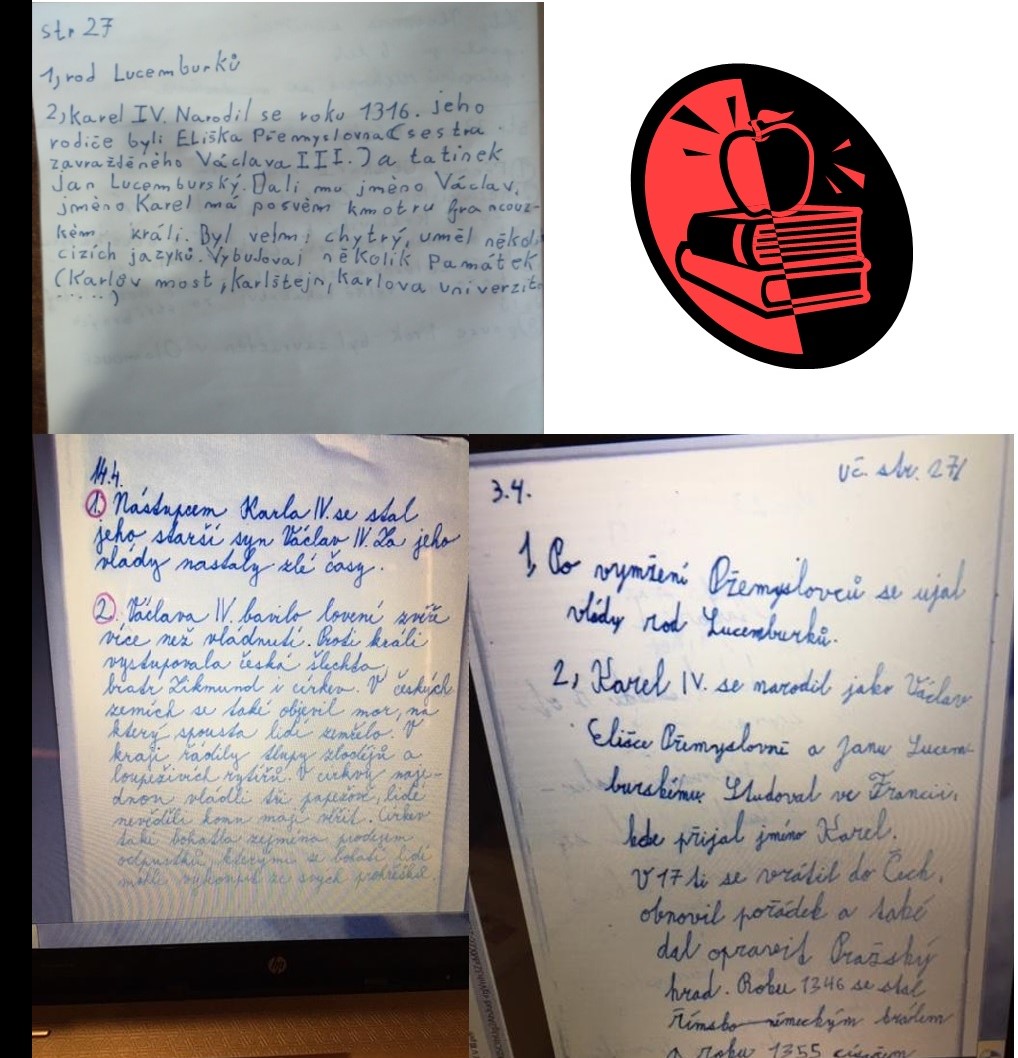 str 27
1, rod Lucemburků
2, Karel IV. Narodil se roku 1316. jeho
rodiče byli Eliška Přemyslovna (sestra
zavražděného Václava III.) a tatínek
Jan Lucemburský. Dali mu jméno Václav,
jméno Karel má posvém kmotru francouz-
kém králi. Byl velmi chytrý, uměl někol
cizích jazyků. Vybuloval několik Památek
(Karlův most, Karlštejn, Karlova univerzit
.....)
14.4.
1. Nástupcem Karla IV se stal
jeho starší syn Václav IV. Za jeho
vlády nastaly zlé časy.
2. Václava IV. bavilo lovení zvíře
více než vládnutí. Proti králi
vystupovala česká šlechta,
bratr Zikmund i církev. V českých
zemích se také objevil mor, na
který spousta lidí zemřelo. V
kraji řádily tlupy zlodějů a
loupeživích rytířů. V církvy naje-
dnou vládli tři papežové, lidé
nevěděli komu mají věřit. Církev
také bohatla zejména prodejem
odpustků, kterými se bohatí lidé
mohli vykoupit ze svých prohřešků.
3.4.
uč. str. 27/
1, Po vymření Přemyslovců se ujal
vlády rod Lucemburků.
2, Karel IV. se narodil jako Václav
Elišce Přemyslovně a Janu Lucem
burskému. Studoval ve Francii,
kde přijal jméno Karel.
V 17 ti se vrátil do Čech,
obnovil pořádek a také
dal opravit Pražský
hrad. Roku 1346 se stal
římsko-německým králem
a roku 1355 císařem
hp